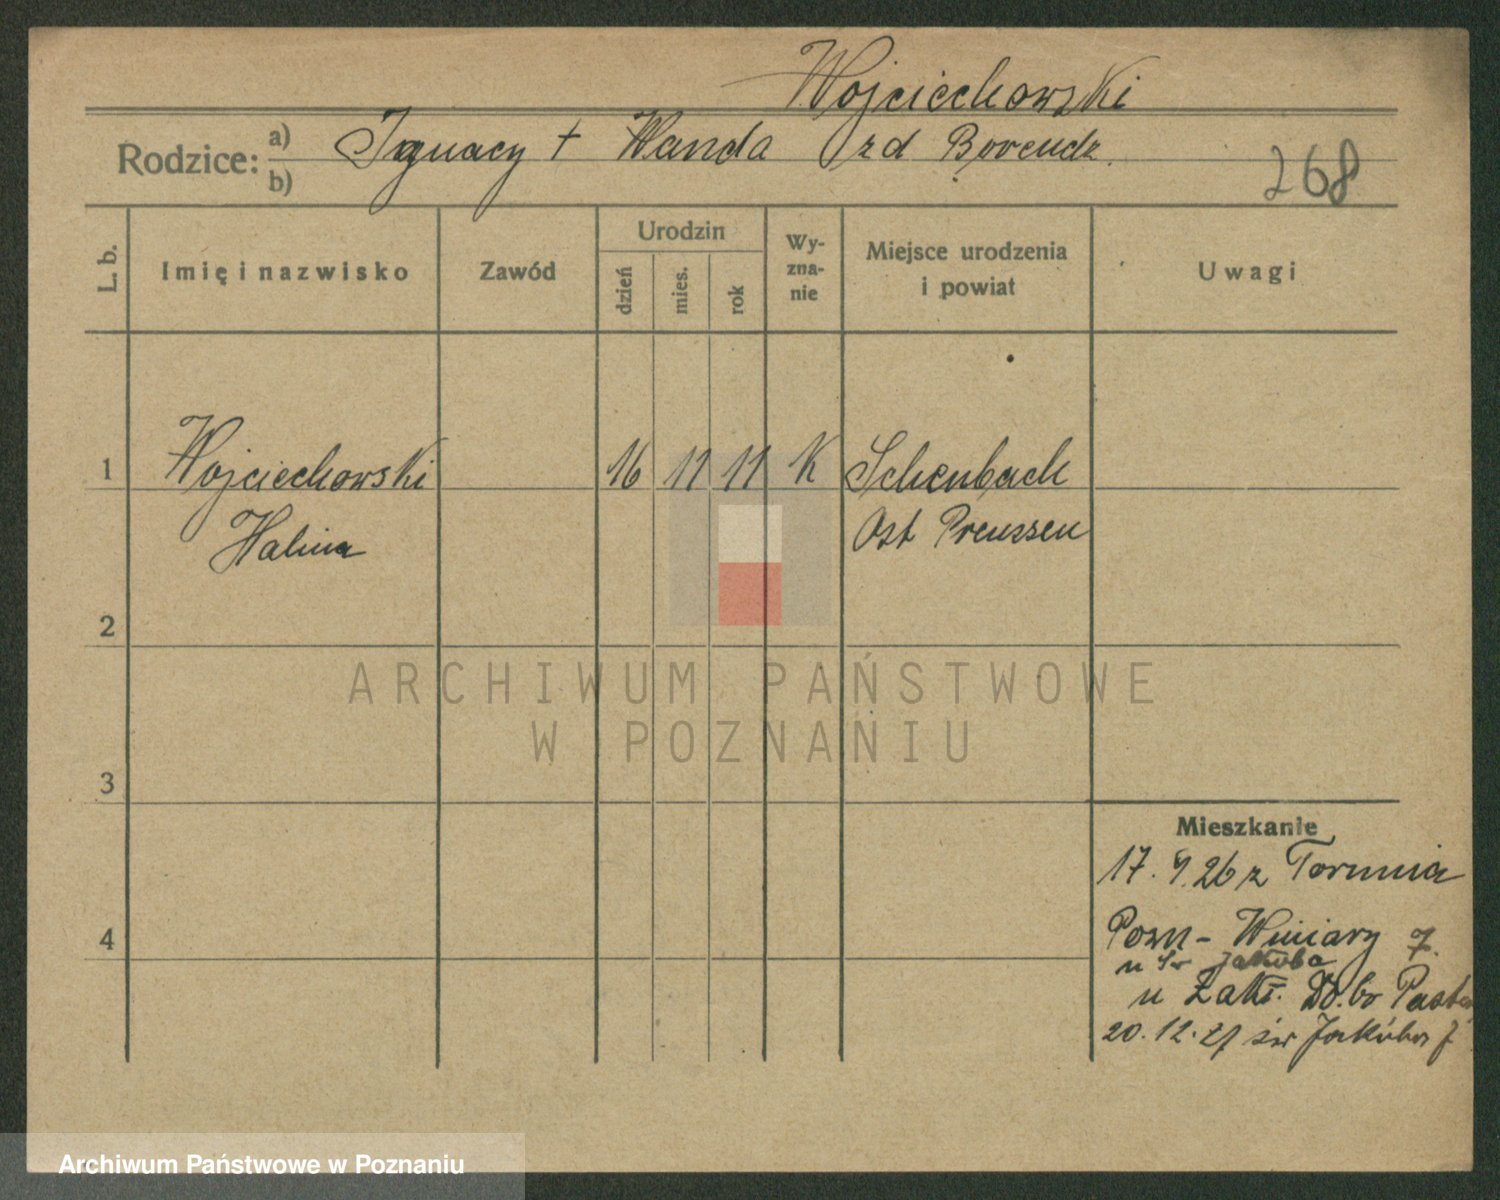 Wojciechowski
Rodzice: a) Ignacy + Wanda zd
b)
268
L. b.
Imię i nazwisko
Zawód
Urodzin
dzień
mies.
rok
Wy-
zna-
nie
Miejsce urodzenia
i powiat
Uwagi
1 Wojciechowski 16 11 11 K Schenbach
Halina Ost Preussen
2
3
4
Mieszkanie
17. 9. 26 z Torunia
Pozn - Winiary 7.
u Św Jakuba
u Zakł.
20. 12. 27 św Jakuba
ARCHIWUM PAŃSTWOWE
W POZNANIU
Archiwum Państwowe w Poznaniu